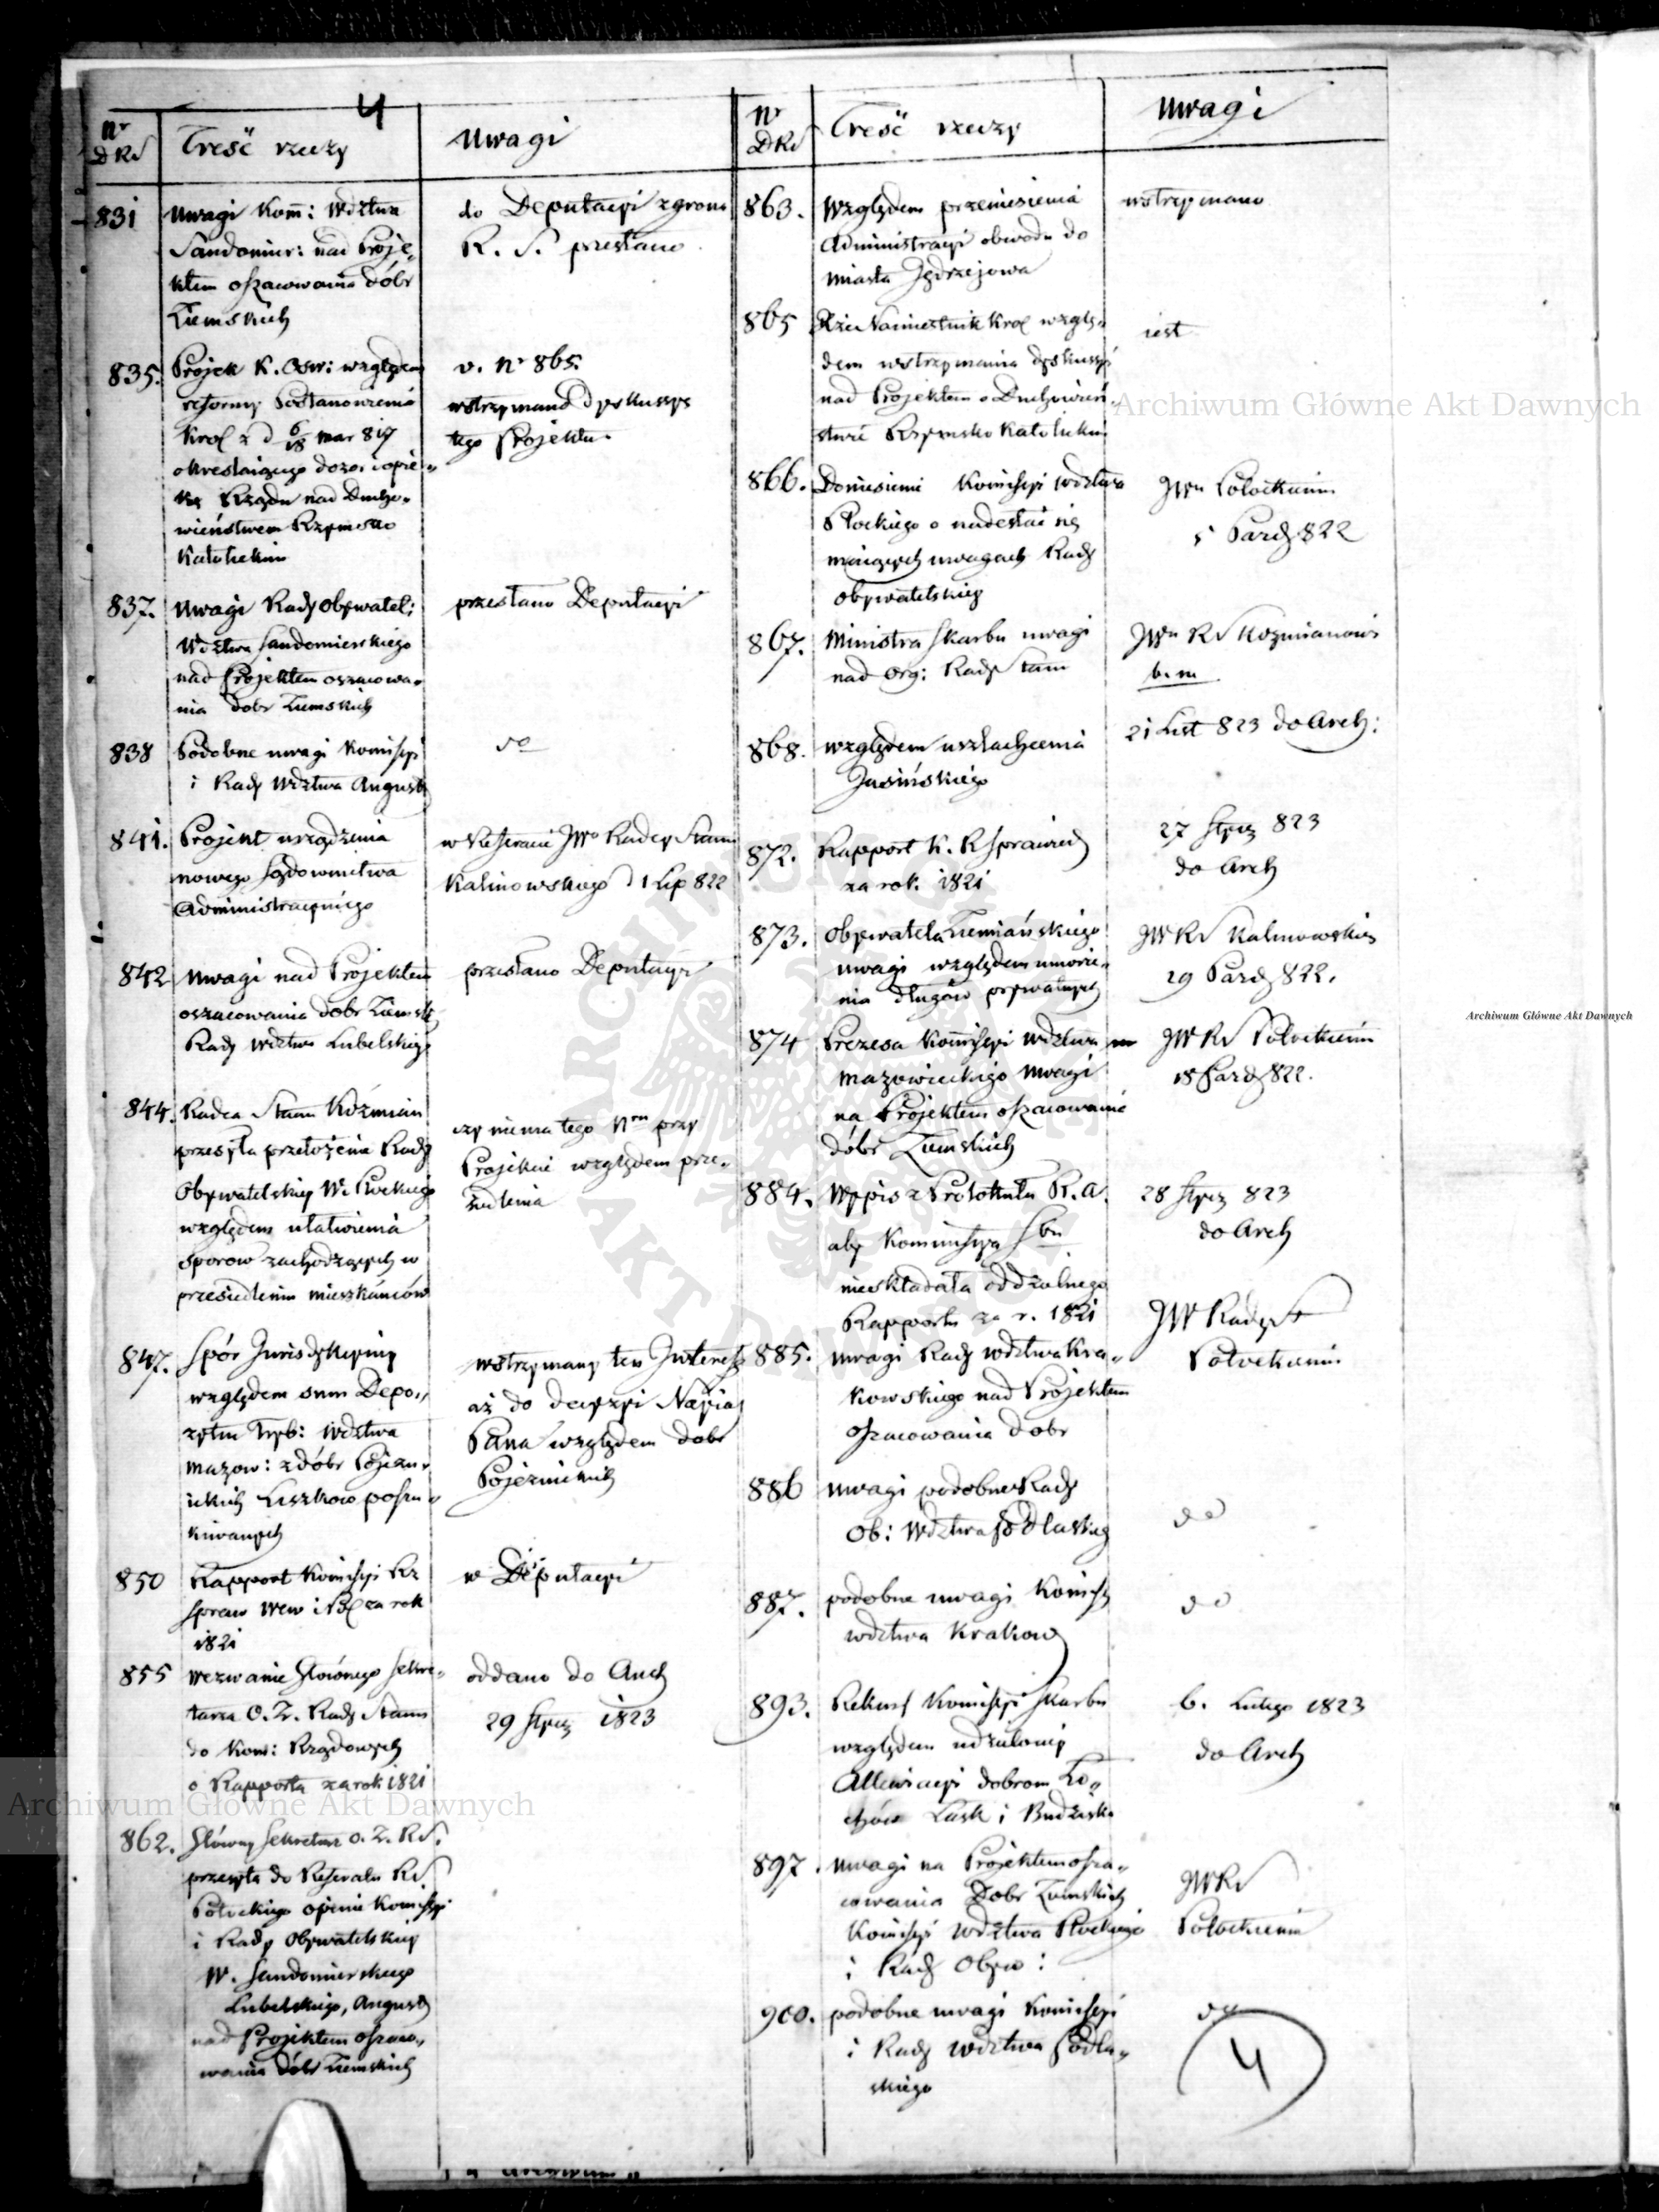 4
Nr DRS
Treść rzeczy
Uwagi
831
Uwagi Kom: Wdztwa
Sandomier: nad Proje„
ktem oszacowania dóbr
Ziemskich
do Deputacyi zgrom
R. S. przesłano
835.
Projek K. Osw: względem
reformy Postanowienia
Krol z d 6/18 mar 817
określaiącego dozor i opie„
kę Rządu nad Ducho„
wieństwem Rzymsko
Katolickim
v. Nr 865.
wstrzymano dyskussyę
tego Projektu
837.
Uwagi Rady Obywatel:
Wdztwa Sandomierskiego
nad Projektem oszacowa„
nia dobr Ziemskich
przesłano Deputacyi
838
Podobne uwagi Komissyi
i Rady Wdztwa August
do
841.
Projekt urządzenia
nowego Sądownictwa
Administracyinego
w Referacie JWo Radcy Stanu
Kalinowskiego d 1 Lip 822
842
Uwagi nad Projektem
oszacowania dobr Ziemsk
Rady Wdztwa Lubelskiego
przesłano Deputacyi
844.
Radca Stanu Koźmian
przesyła przełożenie Rady
Obywatelskiey W. Płockiego
względem ułatwienia
sporow zachodzących w
przesiedleniu mieszkańców
czy niema tego Nru przy
Projekcie względem prze„
siedlenia
847.
Spór Jurisdykcyiny
względem sum Depo„
zytu Tryb: Wdztwa
Mazow: z dóbr Pojezu„
ickich Liszkow poszu„
kiwanych
wstrzymany ten Interess
aż do decyzyi Nayias
Pana względem dobr
Pojezuickich
850
Rapport Komissyi Rz
Spraw Wew i Pol za rok
1821
w Deputacyi
855
Wezwanie Głównego Sekre„
tarza O. Z. Rady Stanu
do Kom: Rządowych
o Rapporta za rok 1821
oddano do Arch
29 Stycz 1823
862.
Główny Sekretarz O. Z. RS.
przesyła do Referatu RS.
Potockiego opinie Komissyi
i Rady Obywatelskiey
W. Sandomierskiego
Lubelskiego, August
nad Projektem oszaco„
wania dóbr Ziemskich
Nr DRS
Treść rzeczy
Uwagi
863.
Względem przeniesienia
Administracyi obwodu do
miasta Jędrzejowa
wstrzymano
865
Xże Namiestnik Krol wzglę„
dem wstrzymania dyskussyi
nad Projektem o Duchowień„
stwie Rzymsko Katolickim
iest
866.
Doniesienie Komissyi Wdztwa
Płockiego o nadesłać się
maiących uwagach Rady
Obywatelskiey
JWu Potockiemu
5 Paźdz 822
867.
Ministra Skarbu uwagi
nad Org: Rady Stanu
JWu RS Kozmianowi
b. m
868.
względem uszlachcenia
Jasińskiego
21 List 823 do Arch:
872.
Rapport K. R Sprawied
za rok 1821
27 Stycz 823
do Arch
873.
Obywatela Ziemiańskiego
uwagi względem umorze„
nia długów prywatnych
JWRS Kalinowskiego
29 Paźdz 822.
874
Prezesa Komissyi Wdztwa
Mazowieckiego Uwagi
na Projektem oszacowania
dóbr Ziemskich
JWRS Potockiemu
18 Paźdz 822.
884.
Wypis z Protokułu R. A.
aby Kommissya Sbu
nieskładała oddzielnego
Rapportu za r. 1821
28 Stycz 823
do Arch
885.
Uwagi Rady Wdztwa Kra„
kowskiego nad Projektem
oszacowania dobr
JW Radcy St
Potockiemu
886
Uwagi podobne Rady
Ob: Wdztwa Podlaskieg
do
887.
podobne uwagi Komissy
Wdztwa Krakow
do
893.
Rekurs Komissyi Skarbu
względem udzieloney
Allewiacyi dobrom
Łask i Budziska
6. Lutego 1823
do Arch
897.
Uwagi na Projektem osza„
cowania Dobr Ziemskich
Komissyi Wdztwa Płockiego
i Rady Obyw:
JWRS
Potockiemu
900.
podobne uwagi Komissyi
i Rady Wdztwa Podla„
skiego
do
4
Archiwum Główne Akt Dawnych
Archiwum Główne Akt Dawnych
Archiwum Główne Akt Dawnych
ARCHIWUM GŁÓWNE AKT DAWNYCH